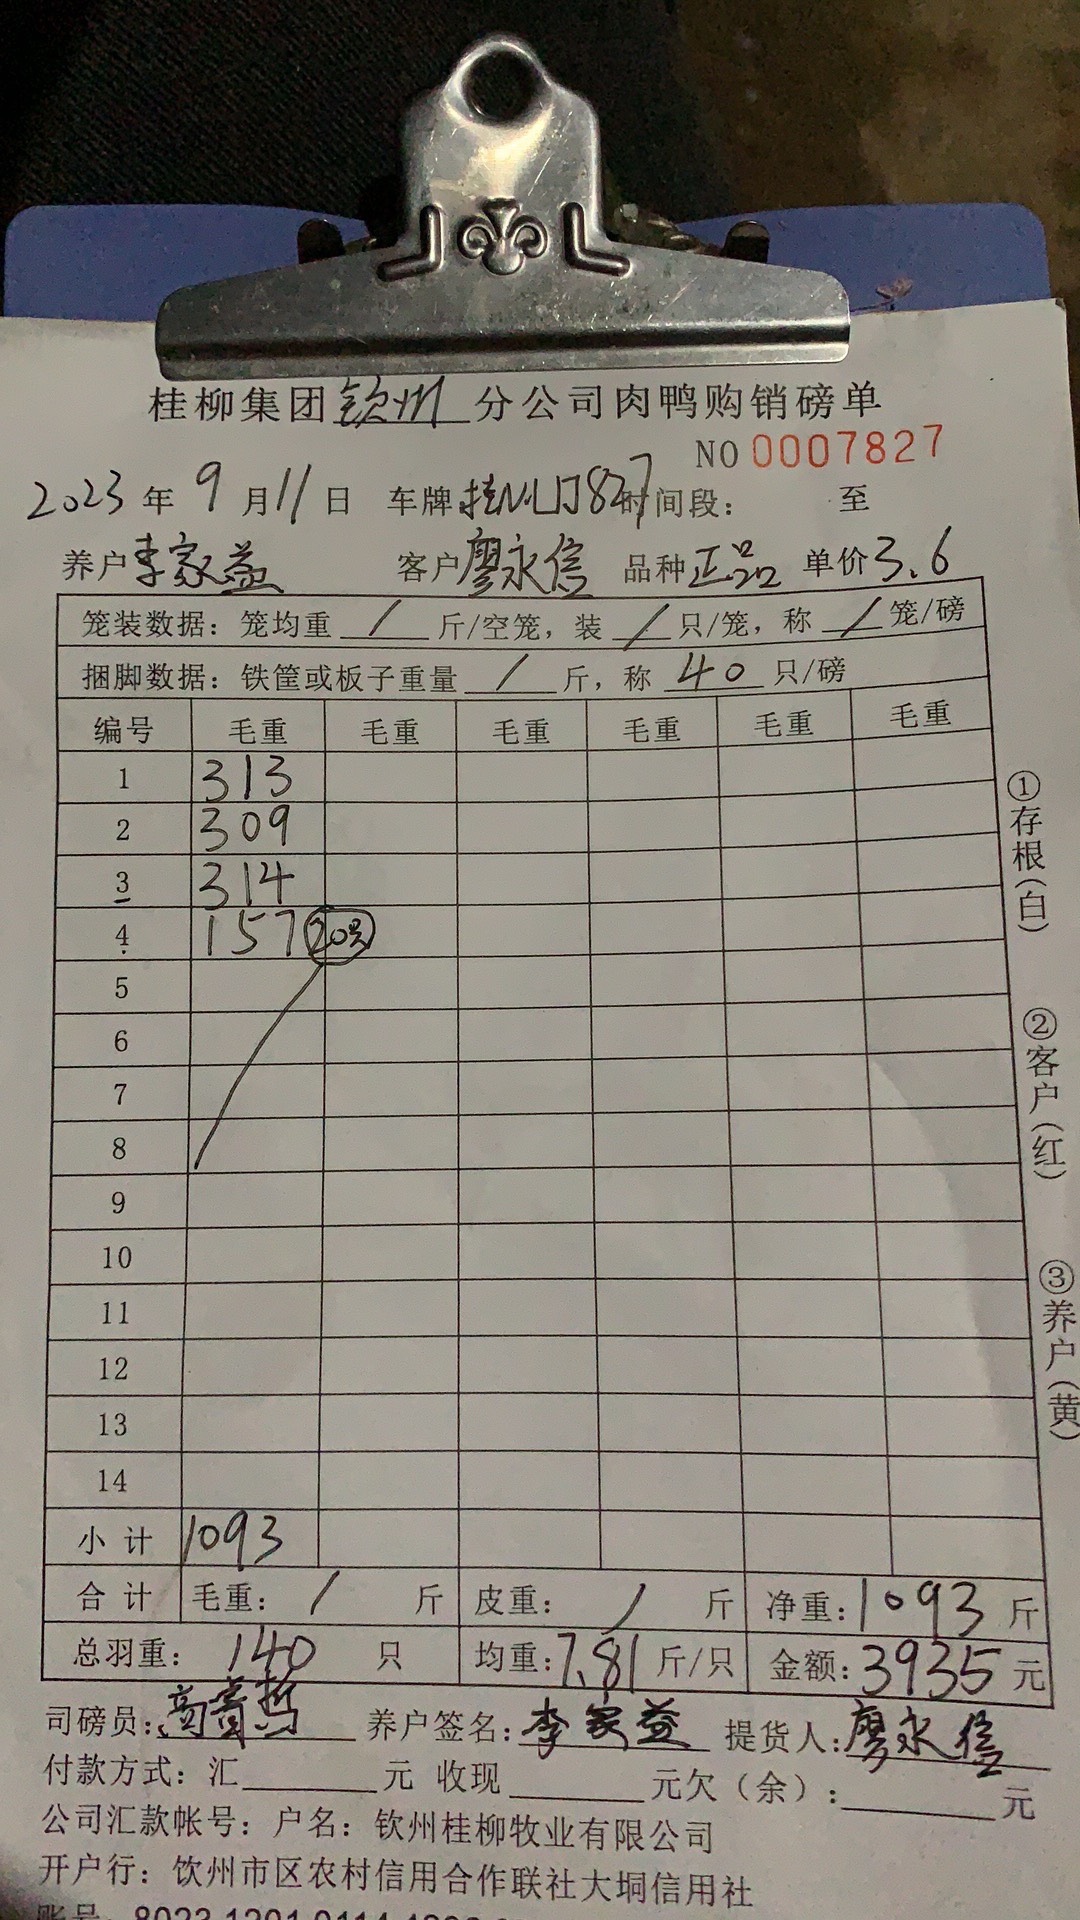 桂柳集团钦州分公司肉鸭购销磅单
NO 0007827
2023年9月11日 车牌桂N 827时间段： 至
养户李家益 客户廖永信 品种正品 单价3.6
笼装数据：笼均重/斤/空笼，装/只/笼，称/笼/磅
捆脚数据：铁筐或板子重量/斤，称40只/磅
编号 毛重 毛重 毛重 毛重 毛重 毛重
1 313
2 309
3 314
4 157 20只
5
6
7
8
9
10
11
12
13
14
小计 1093
合计 毛重：/斤 皮重：/斤 净重：1093斤
总羽重：140只 均重：7.81斤/只 金额：3935元
司磅员： 养户签名：李家益 提货人：廖永信
付款方式：汇 元 收现 元欠（余）： 元
公司汇款帐号：户名：钦州桂柳牧业有限公司
开户行：钦州市区农村信用合作联社大垌信用社
账号：8023 1201 0114
①存根（白）
②客户（红）
③养户（黄）